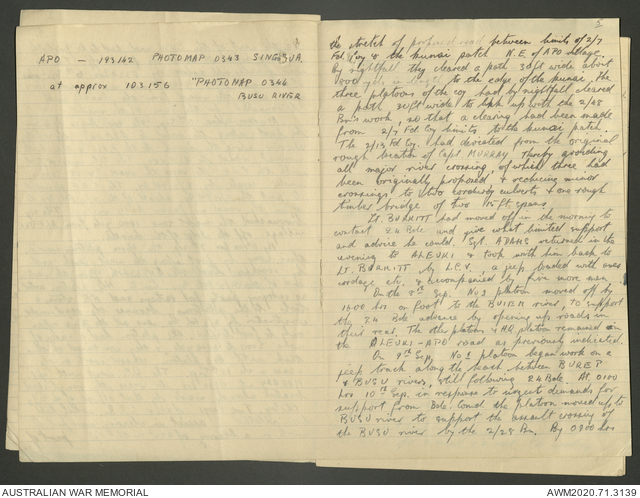 APO — 193142 PHOTOMAP 0343 SINGAUA
at approx 103156 "PHOTOMAP 0346
BUSU RIVER
5
the stretch of proposed road between limits of 2/7
Fd Coy & the kunai patch N.E. of APO village.
By nightfall they cleared a path 30ft wide about
to the edge of the kunai. The
three platoons of the coy had by nightfall cleared
a path 30ft wide to link up with the 2/48
Bn's work, so that a clearing had been made
from 2/7 Fd Coy limits to the kunai patch.
The 2/13 Fd Coy. had deviated from the original
rough of Capt. MURRAY thereby avoiding
all major river crossings of which three had
been originally proposed & reducing minor
crossings to two corduroy culverts & one rough
timber bridge of two 15ft spans.
Lt. BURHITT had moved off in the morning to
contact 24 Bde and give what limited support
and advice he could. Sgt. ADAMS returned in the
evening to ALEUKI & took with him back to
Lt. BURHITT by L.C.V. a jeep loaded with
cordage etc. & accompanied by five more men.
On the 8th Sep. No 2 platoon moved off by
1600 hrs on foot to the BUIEM river, to support
the 24 Bde advance by opening up roads in
their rear. The other platoons & H.Q. platoon remained on
the ALEUKI - APO road as previously indicated.
On 9th Sep. No 2 platoon began work on a
jeep track along the beach between BUREP
& BUSU rivers, still following 24 Bde. At 0100
hrs 10th Sep. in response to urgent demands for
support from Bde. Comd. the platoon moved up to
BUSU river to support the assault crossing of
the BUSU river by the 2/28 Bn. By 0900 hrs
AUSTRALIAN WAR MEMORIAL
AWM2020.71.3139